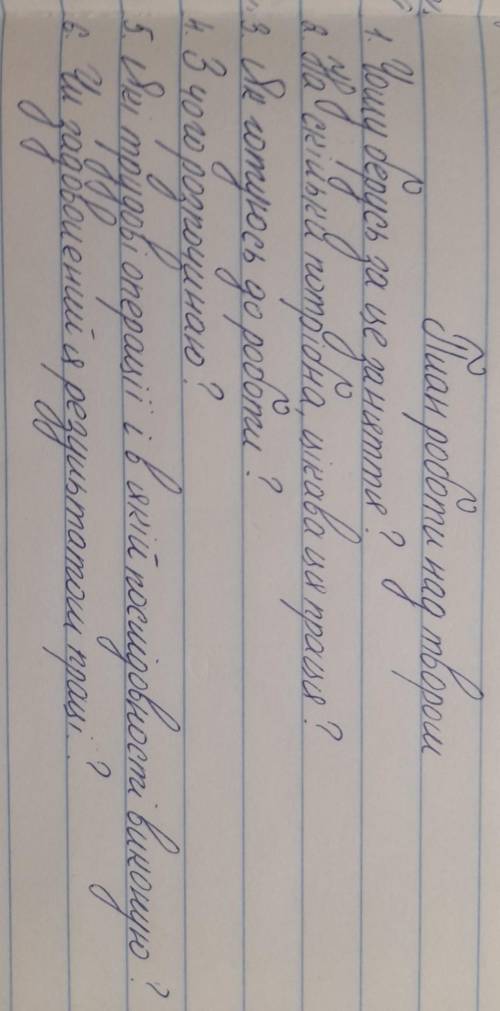 План роботи над твором
1. Чому берусь за це заняття?
2. На скільки потрібна, цікава ця праця?
3. Як готуюсь до роботи?
4. З чого розпочинаю?
5. Які трудові операції і в якій послідовності виконую?
6. Чи задоволений я результатом праці...?